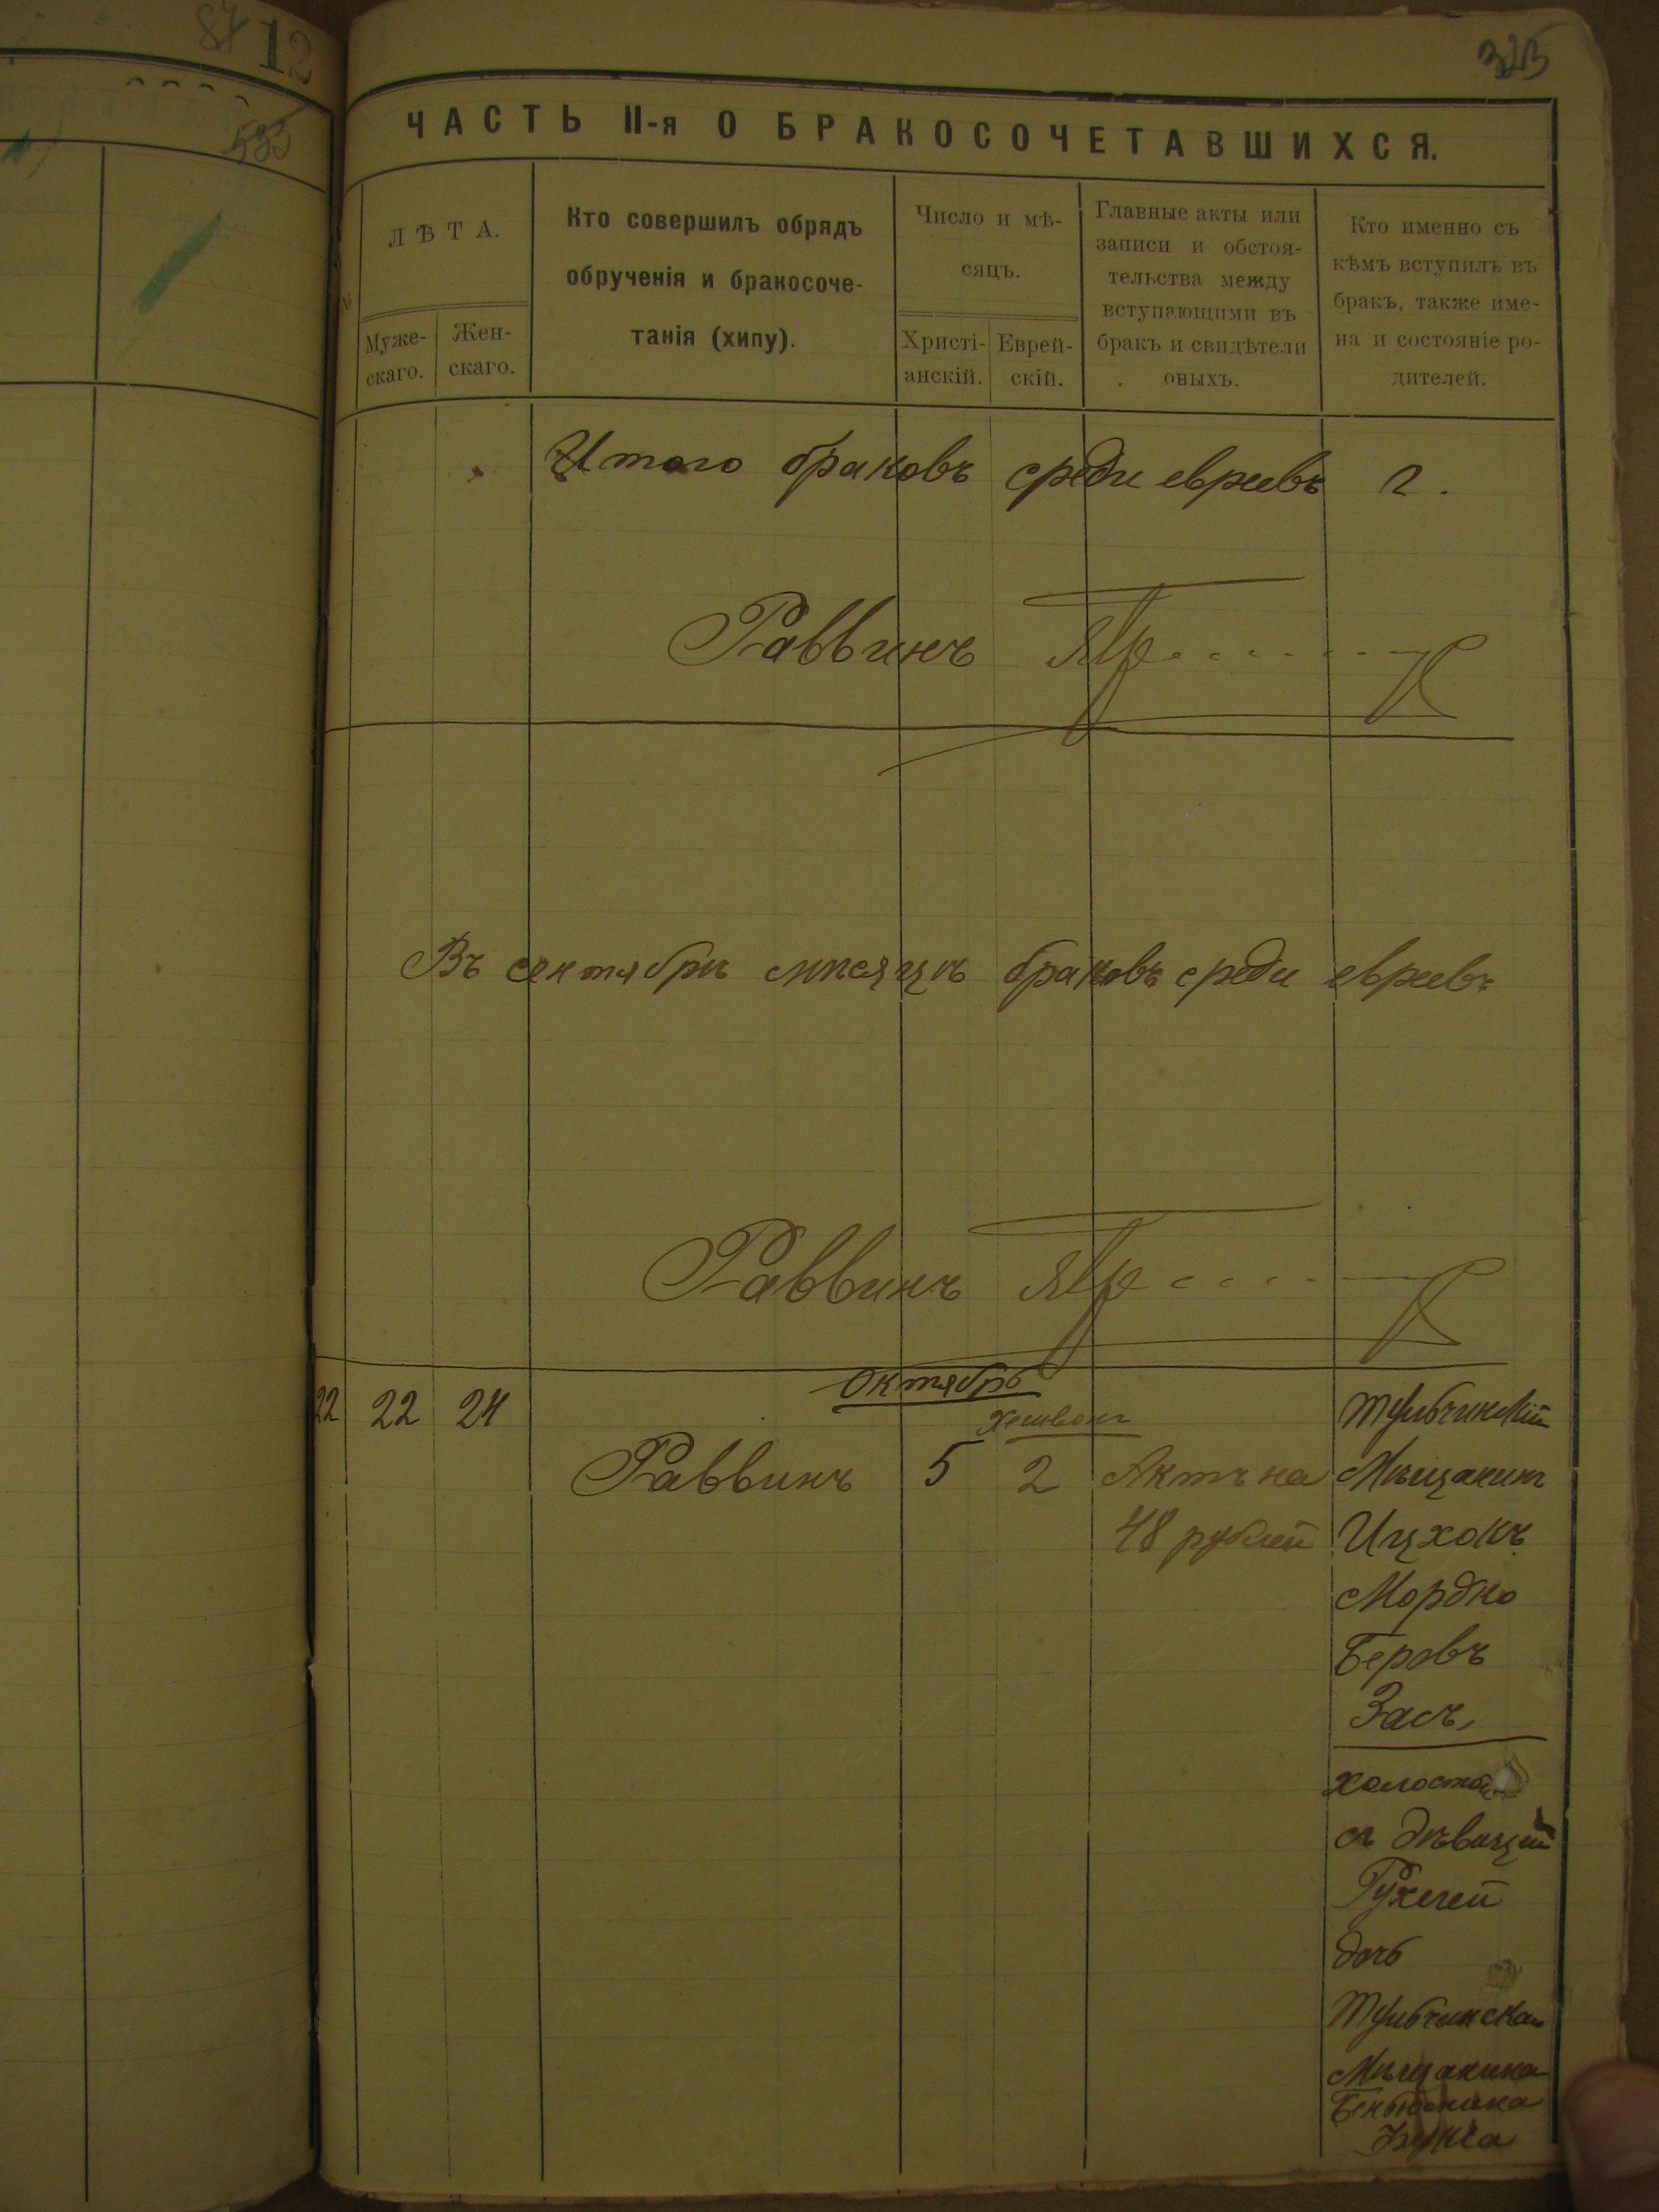 12
325
533
ЧАСТЬ II-я О БРАКОСОЧЕТАВШИХСЯ.
ЛѢТА.
Муже-
скаго.
Жен-
скаго.
Кто совершилъ обрядъ
обрученія и бракосоче-
танія (хипу).
Число и мѣ-
сяцъ.
Христі-
анскій.
Еврей-
скій.
Главные акты или
записи и обстоя-
тельства между
вступающими въ
бракъ и свидѣтели
оныхъ.
Кто именно съ
кѣмъ вступилъ въ
бракъ, также име-
на и состояніе ро-
дителей.
Итого браковъ среди евреевъ 2.
Раввинъ
Въ сентябрѣ мѣсяцѣ браковъ среди евреевъ
Раввинъ
Октябрь
22 22 24
Раввинъ 5 2 Актъ на
48 рублей
Тульчинскій
Мѣщанинъ
Ицхокъ
Мордко
Беровъ
Засъ,
холостой
съ дѣвицей
Рухлей
дочь
Тульчинскаго
Мѣщанина
Беньюмина